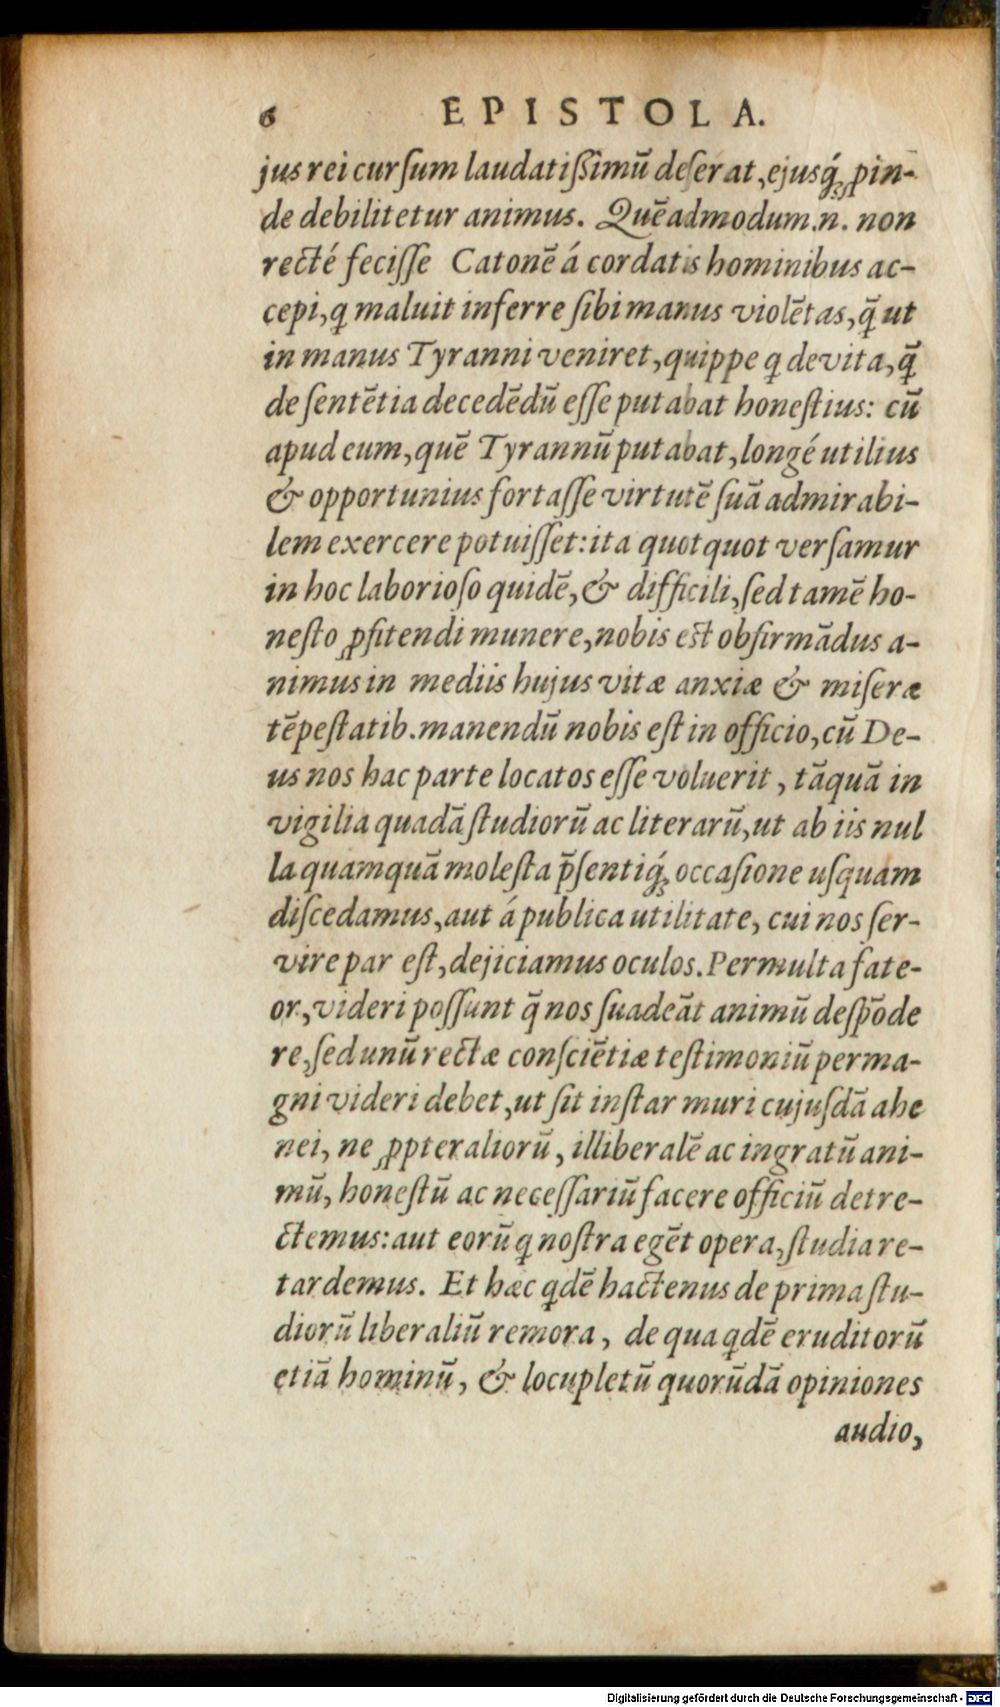 6 EPISTOLA.
jus rei cursum laudatißimũ deserat, ejusq́ꝫ ꝓin-
de debilitetur animus. Quẽadmodum.n. non
recté fecisse Catonẽ á cordatis hominibus ac-
cepi, ꝗ maluit inferre sibi manus violẽtas, q̃ ut
in manus Tyranni veniret, quippe ꝗ de vita, q̃
de sentẽtia decedẽdũ esse putabat honestius: cũ
apud eum, quẽ Tyrannũ putabat, longé utilius
& opportunius fortasse virtutẽ suã admirabi-
lem exercere potuisset: ita quotquot versamur
in hoc laborioso quidẽ, & difficili, sed tamẽ ho-
nesto ꝓfitendi munere, nobis est obfirmãdus a-
nimus in mediis hujus vitæ anxiæ & miseræ
tẽpestatib. manendũ nobis est in officio, cũ De-
us nos hac parte locatos esse voluerit, tãquã in
vigilia quadã studiorũ ac literarũ, ut ab iis nul
la quamquã molesta p̃sentiq́ꝫ occasione usquam
discedamus, aut á publica utilitate, cui nos ser-
vire par est, dejiciamus oculos. Permulta fate-
or, videri possunt q̃ nos suadeãt animũ desp̃ode
re, sed unũ rectæ consciẽtiæ testimoniũ perma-
gni videri debet, ut sit instar muri cujusdã ahe
nei, ne ꝓpter aliorũ, illiberalẽ ac ingratũ ani-
mũ, honestũ ac necessariũ facere officiũ detre-
ctemus: aut eorũ ꝗ nostra egẽt opera, studia re-
tardemus. Et hæc ꝗdẽ hactenus de prima stu-
diorũ liberaliũ remora, de qua ꝗdẽ eruditorũ
etiã hominũ, & locupletũ quorũdã opiniones
audio,
Digitalisierung gefördert durch die Deutsche Forschungsgemeinschaft - DFG